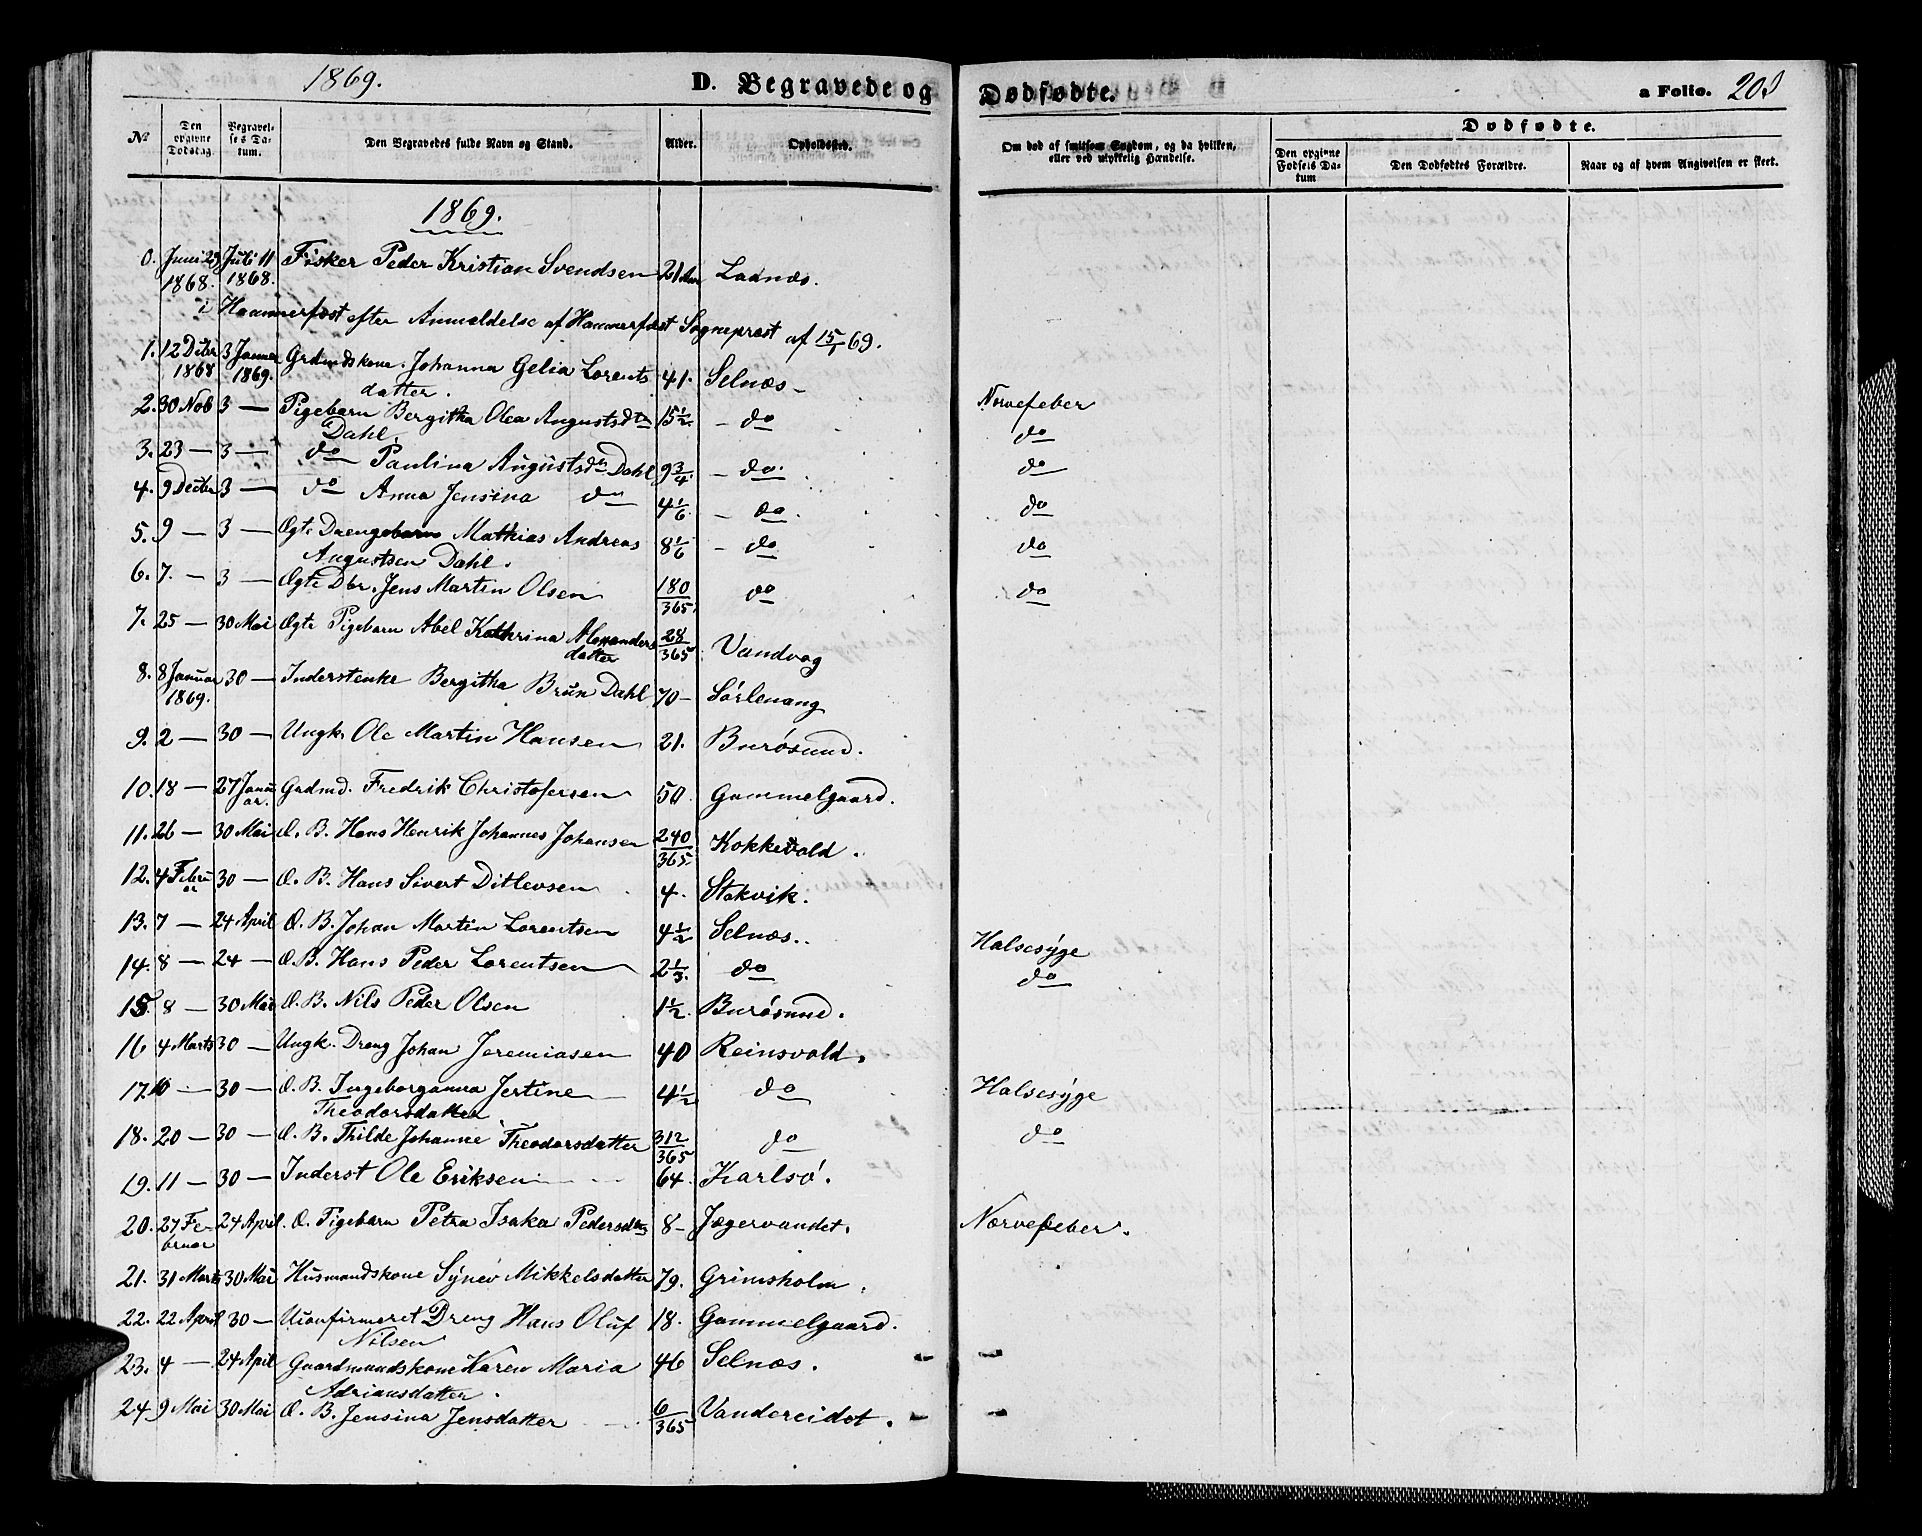 1869. D. Begravede og Dødfødte. a Folio. 203
Dødfødte.
No
Den opgivne Dødsdag.
Begravelses Datum.
Den Begravedes fulde Navn og Stand.
Alder.
Opholdssted.
Om død af smitsom Sygdom, og da hvilken, eller ved ulykkelig Hændelse.
Den opgivne Fødsels Datum
Den Dødfødtes Forældre.
Naar og af hvem Angivelsen er skeet.
1869.
0. Juni 29 1868. Juli 11 1868. Fisker Peder Kristian Svendsen 21 Aar Laanæs.
i Hammerfest efter Anmeldelse af Hammerfest Sognepræst af 15/1 69.
1. 12 Dcbr 1868 3 Januar 1869. Grdmdskone Johanna Gelia Lorents 41. Selnæs
datter.
2. 30 Nob 3 — Pigebarn Bergitha Olea Augustsdtr 15 1/2. — do Nervefeber
Dahl. do
3. 23 — 3 — do Paulina Augustsdtr Dahl 9 3/4. — do. do
4. 9 Decbr 3 — do Anna Jensina do 4 1/6. — do. do
5. 9 — 3 — Ægte Drengebarn Mathias Andreas 8 1/6 — do do
Augustsen Dahl.
6. 7. — 3 — Ægte Dbr. Jens Martin Olsen 180/365. do do
7. 25 — 30 Mai Ægte Pigebarn Abel Kathrina Alexanders 28/365. Vandvag
datter
8. 8 Januar 1869. 30 — Inderstenke Bergitha Brun Dahl 70 — Sørlenang
9. 2 — 30 — Ungk. Ole Martin Hansen 21. Burøsund.
10. 18 — 27 Januar. Grdmd. Fredrik Christofersen 50 Gammelgaard.
11. 26 — 30 Mai Æ. B. Hans Henrik Johannes Johansen 240/365. Kokkevold.
12. 4 Februar 30 — Æ. B. Hans Sivert Ditlevsen 4. Stakvik.
13. 7 — 24 April Æ. B. Johan Martin Lorentsen 4 1/2 Selnæs. Halsesyge
14. 8 — 24 — Æ. B. Hans Peder Lorentsen 2 1/3. do do
15. 8 — 30 Mai Æ. B. Nils Peder Olsen 1 1/2. Burøsund.
16 4 Marts 30 — Ungk. Dreng Johan Jeremiasen 40 Reinsvold.
17. 10 — 30 — Æ. B. Ingeborganna Jertine 4 1/2 do Halsesyge
Theodorsdatter
18. 20 — 30 — Æ. B. Thilde Johanne Theodorsdatter 312/365 do do
19. 11 — 30 — Inderst Ole Eriksen 64. Karlsø.
20. 27 Februar 24 April. Æ. Pigebarn Petra Isaka Pedersdtr 8 — Jægervandet. Nervefeber.
21. 31 Marts 30 Mai Husmandskone Synev Mikkelsdatter 79. Grimsholm.
22. 22 April 30 — Uconfirmeret Dreng Hans Oluf 18. Gammelgaard.
Nilsen
23. 4 — 24 April Gaardmandskone Karen Maria 46 Selnæs.
Adriansdatter.
24. 9 Mai 30 Mai Æ. B. Jensina Jensdatter 6/365 Vandereidet.